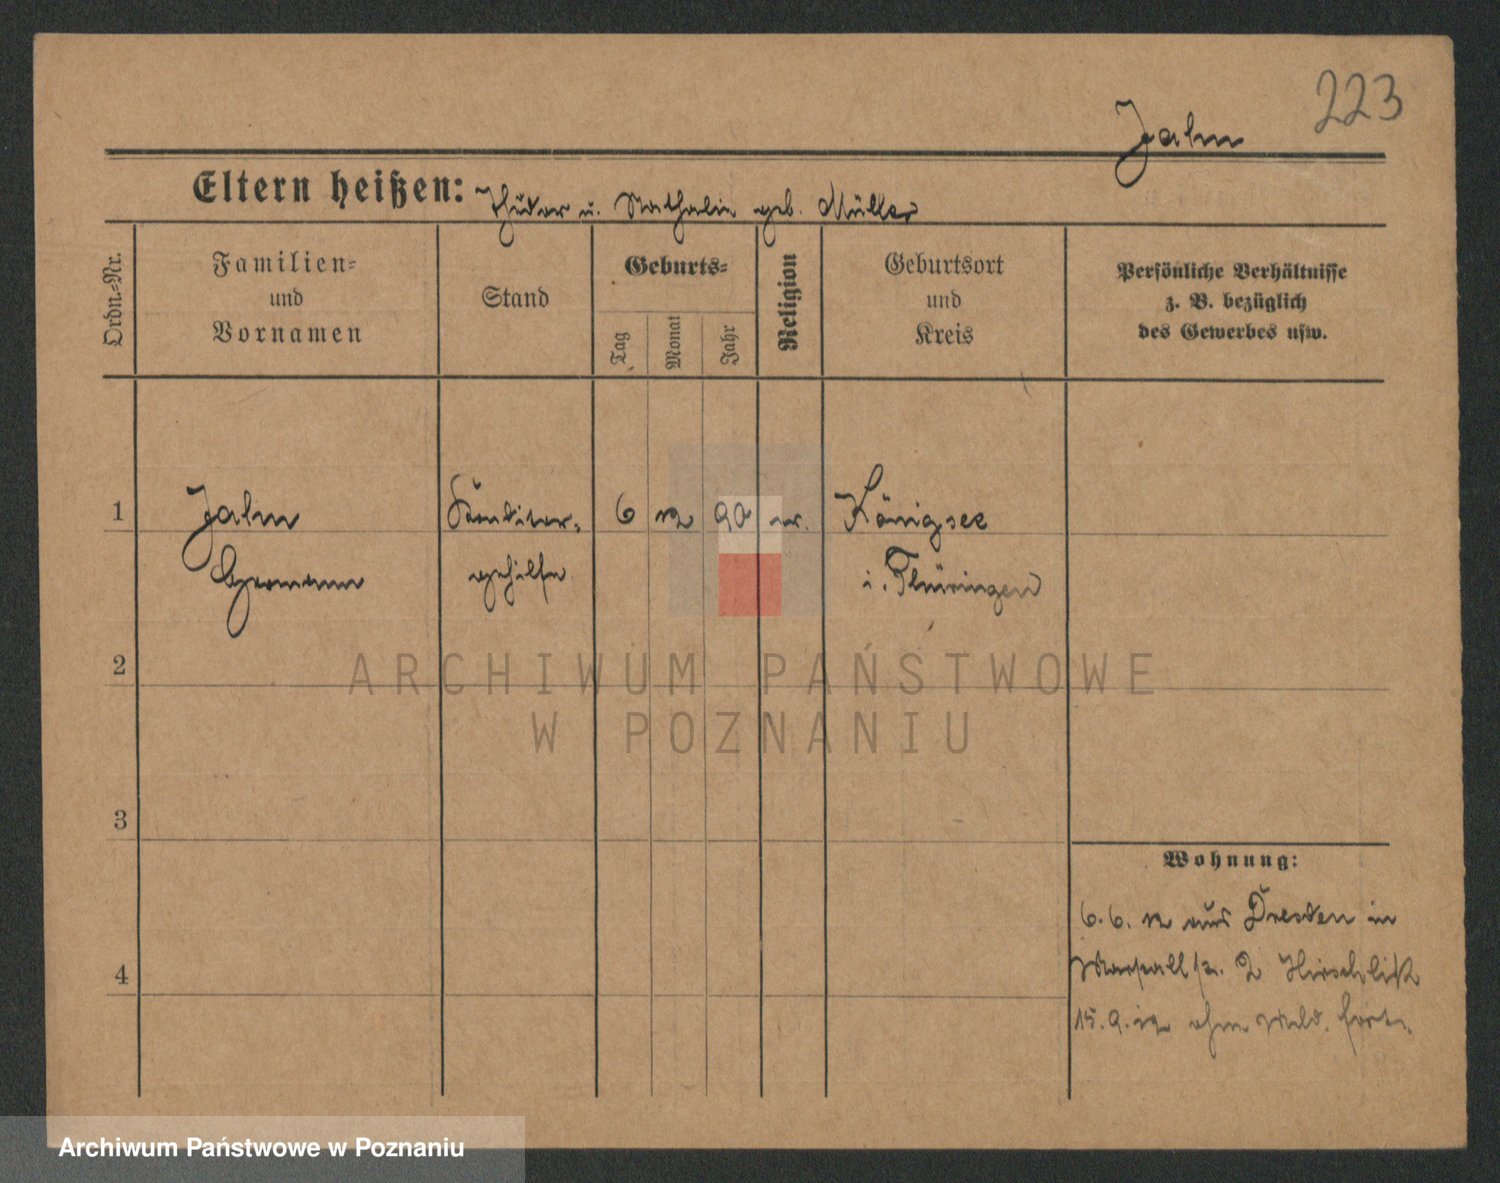 223
Jahn
Eltern heißen: Theodor u. Nathalie geb. Müller
Ordn.-Nr.
Familien-
und
Vornamen
Stand
Geburts-
Tag
Monat
Jahr
Religion
Geburtsort
und
Kreis
Persönliche Verhältnisse
z. B. bezüglich
des Gewerbes usw.
1
Jahn
Hermann
Konditor-
gehilfe
6
12
90
ev.
Königsee
i. Thüringen
2
3
4
Wohnung:
6. 6. 12 aus Dresden in
2
15. 9. 12 ohne Meld. fort.
ARCHIWUM PAŃSTWOWE
W POZNANIU
Archiwum Państwowe w Poznaniu